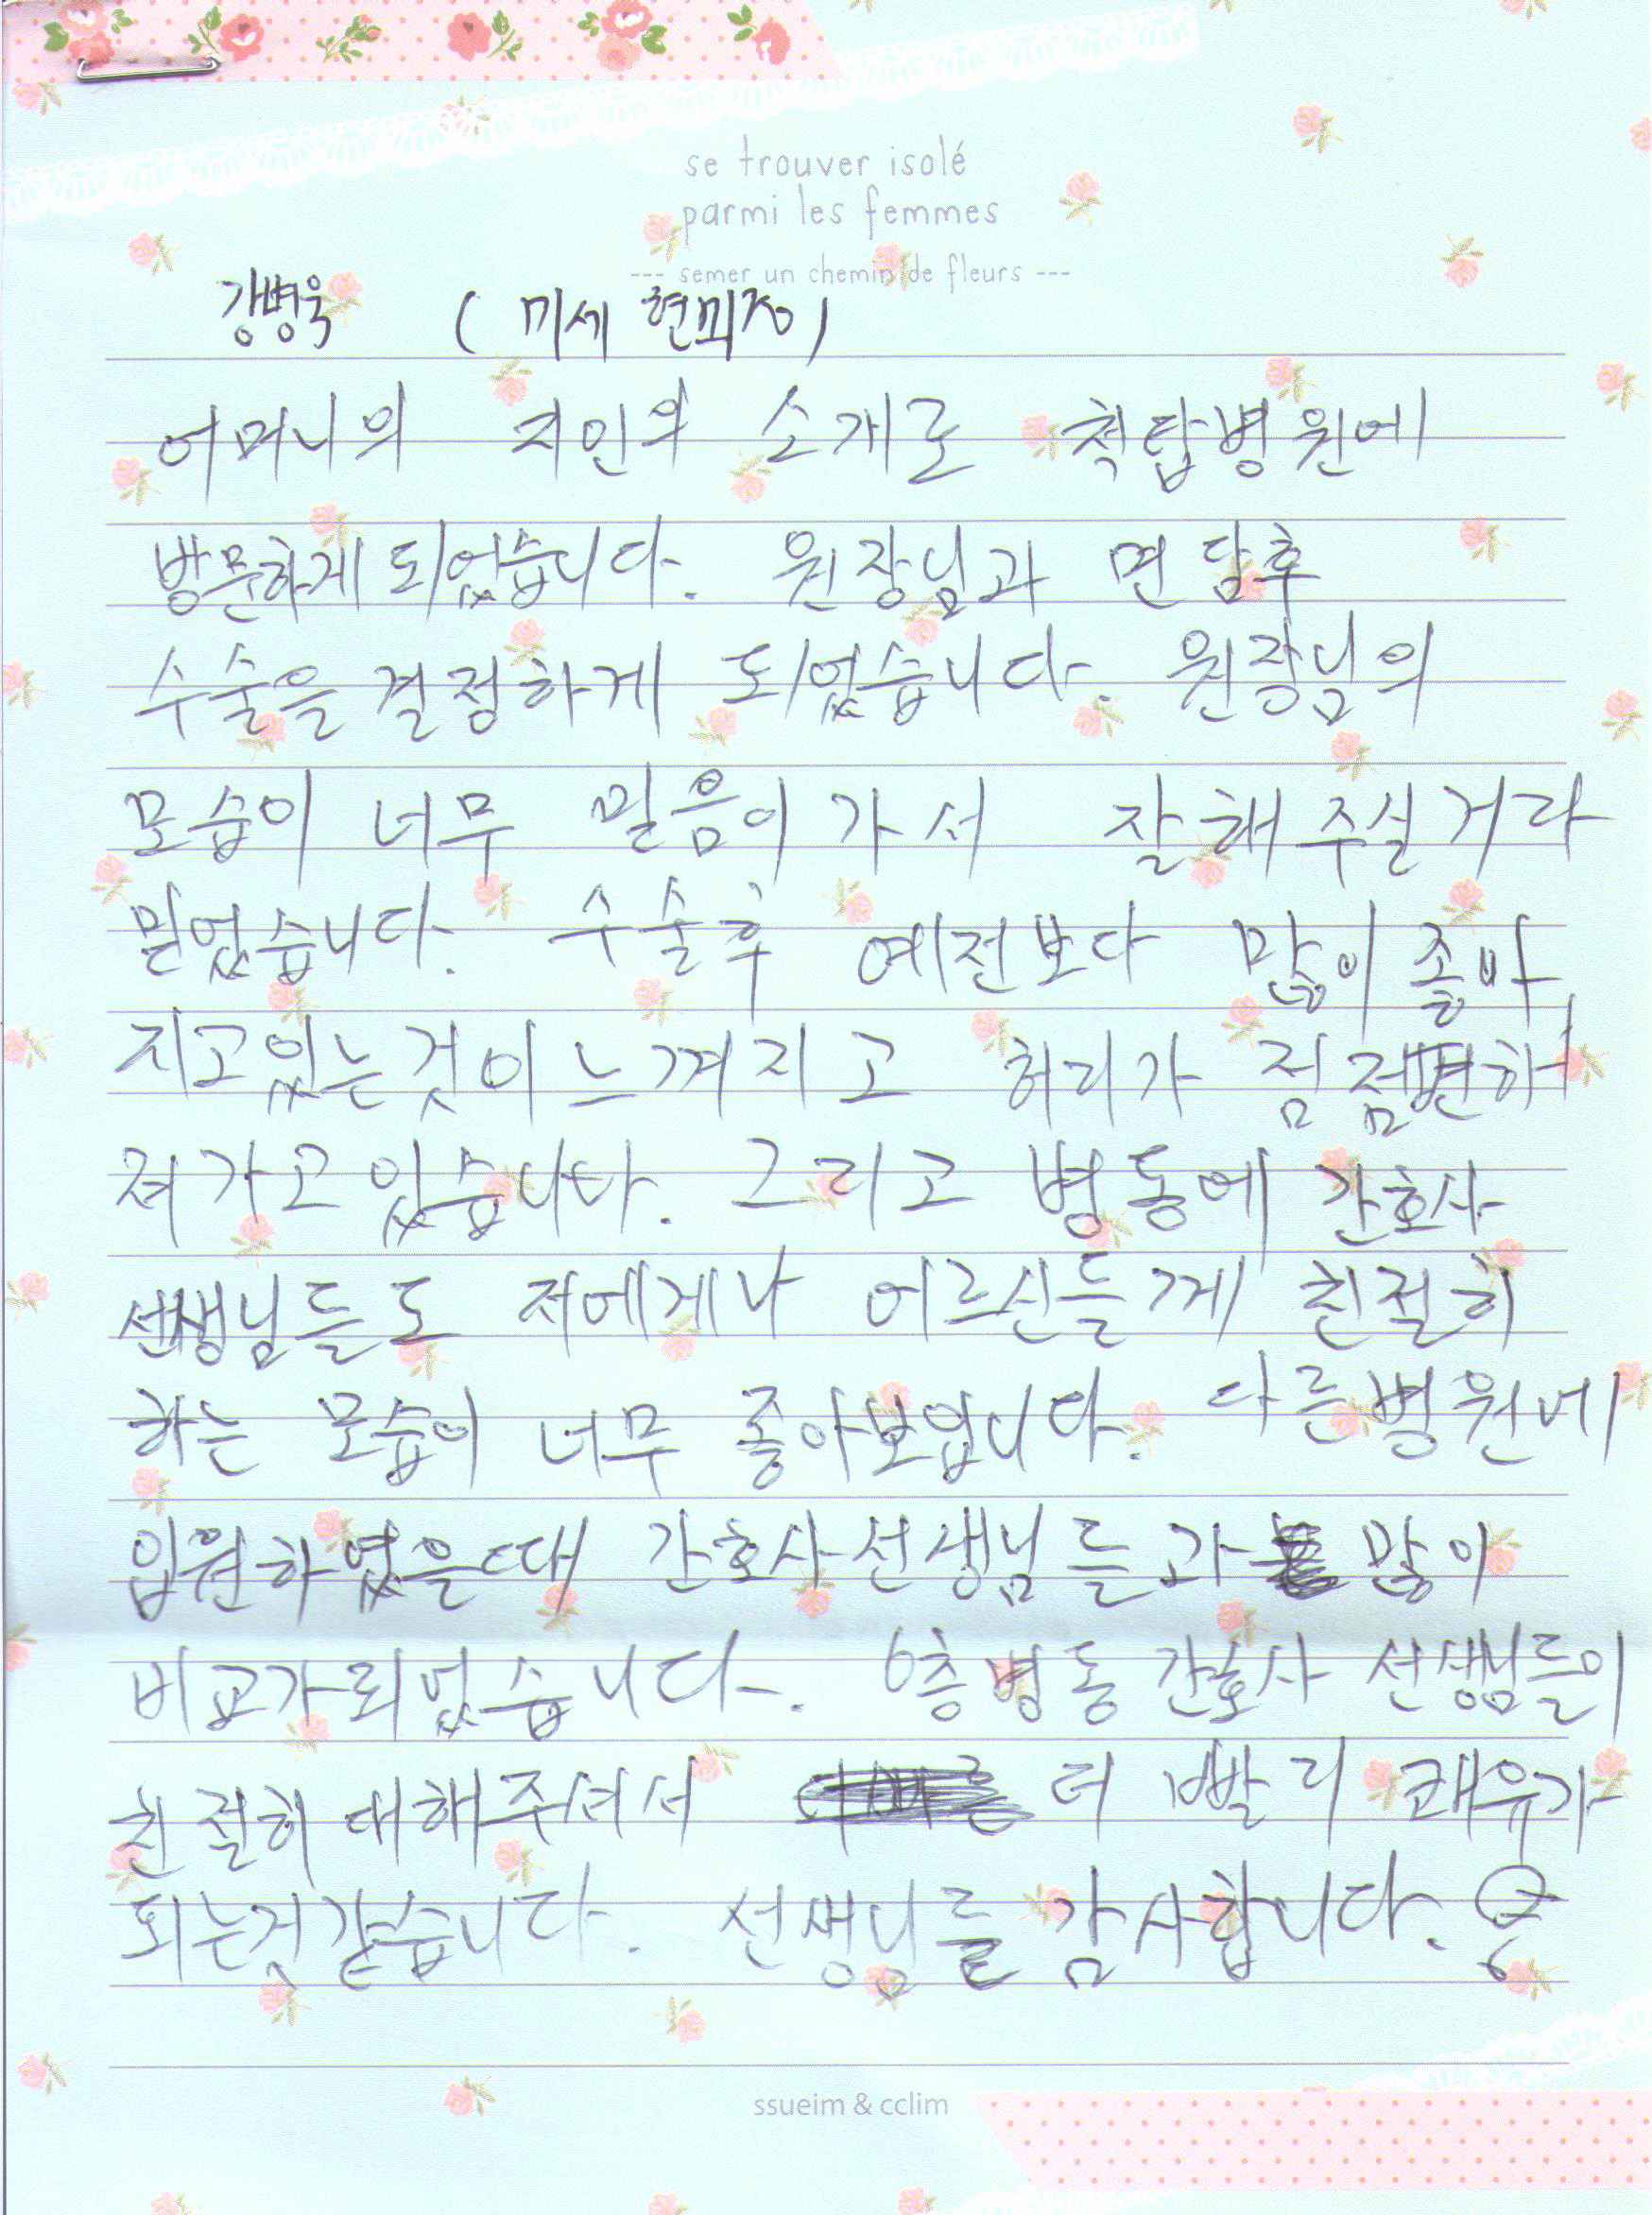 se trouver isolé
parmi les femmes
--- semer un chemin de fleurs ---
강병욱 (미세 현미경)
어머니의 지인의 소개로 척탑병원에
방문하게 되었습니다. 원장님과 면담후
수술을 결정하게 되었습니다. 원장님의
모습이 너무 믿음이 가서 잘해주실거라
믿었습니다. 수술후 예전보다 많이 좋아
지고있는것이 느껴지고 허리가 점점편하
져가고 있습니다. 그리고 병동에 간호사
선생님들도 저에게나 어르신들께 친절히
하는 모습이 너무 좋아보입니다. 다른병원에
입원하였을때 간호사선생님들과 많이
비교가되었습니다. 6층병동 간호사 선생님들이
친절히 대해주셔서 더 빨리 쾌유가
되는것같습니다. 선생님들 감사합니다.
ssueim & cclim